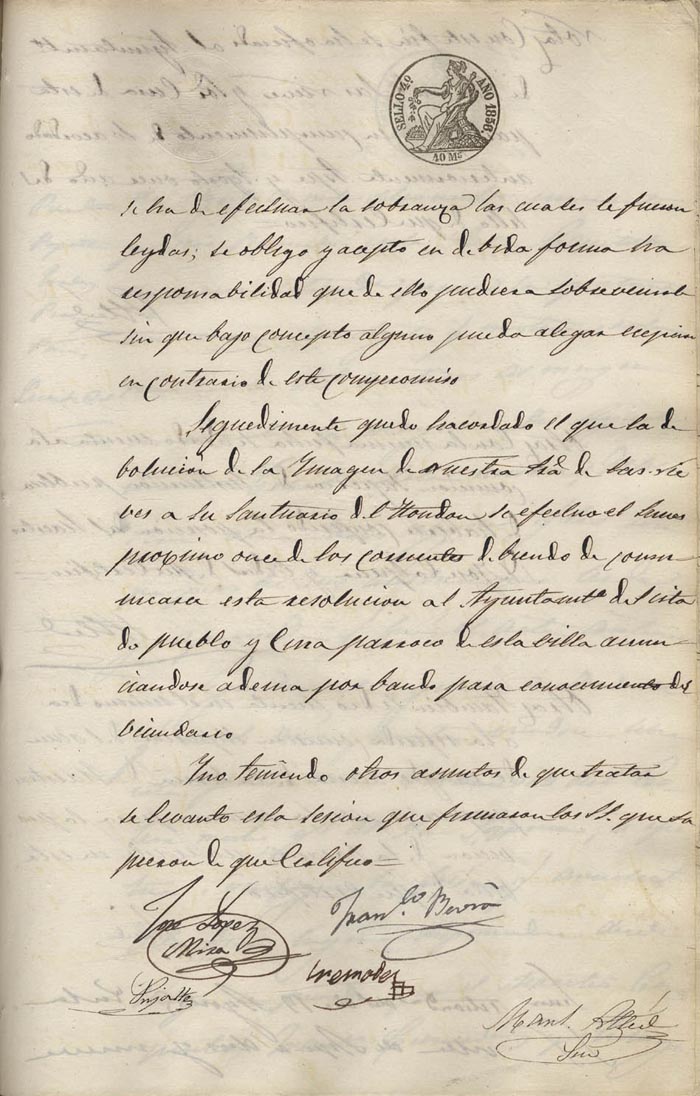 SELLO 4º AÑO 1856.
40 Ms.
se ha de efectuar la sobranza las cuales le fueron
leydas; se obligo y acepto en debida forma ha
responsabilidad que de ello pudiera sobrevenirle
sin que bajo concepto alguno pueda alegar ecepcion
en contrario de este compromiso
Seguedimente quedo hacordado el que la de
bolucion de la Ymagen de Nuestra Sra. de las Nie
ves a su Santuario del Hondon se efectue el Lunes
proximo once de los corrientes debiendo de comu
nicarse esta resolucion al Ayuntamto. de
do pueblo y Cura parroco de esta villa anun-
ciandose adema por bando para conocimiento del
bicindario
Y no teniendo otros asuntos de que tratar
se levanto esta sesion que firmaron los SS. que su
pieron de que Certifico=
Jose Lopez
Franco
Mira
Cremades
Pujalte
Manl.
Srio